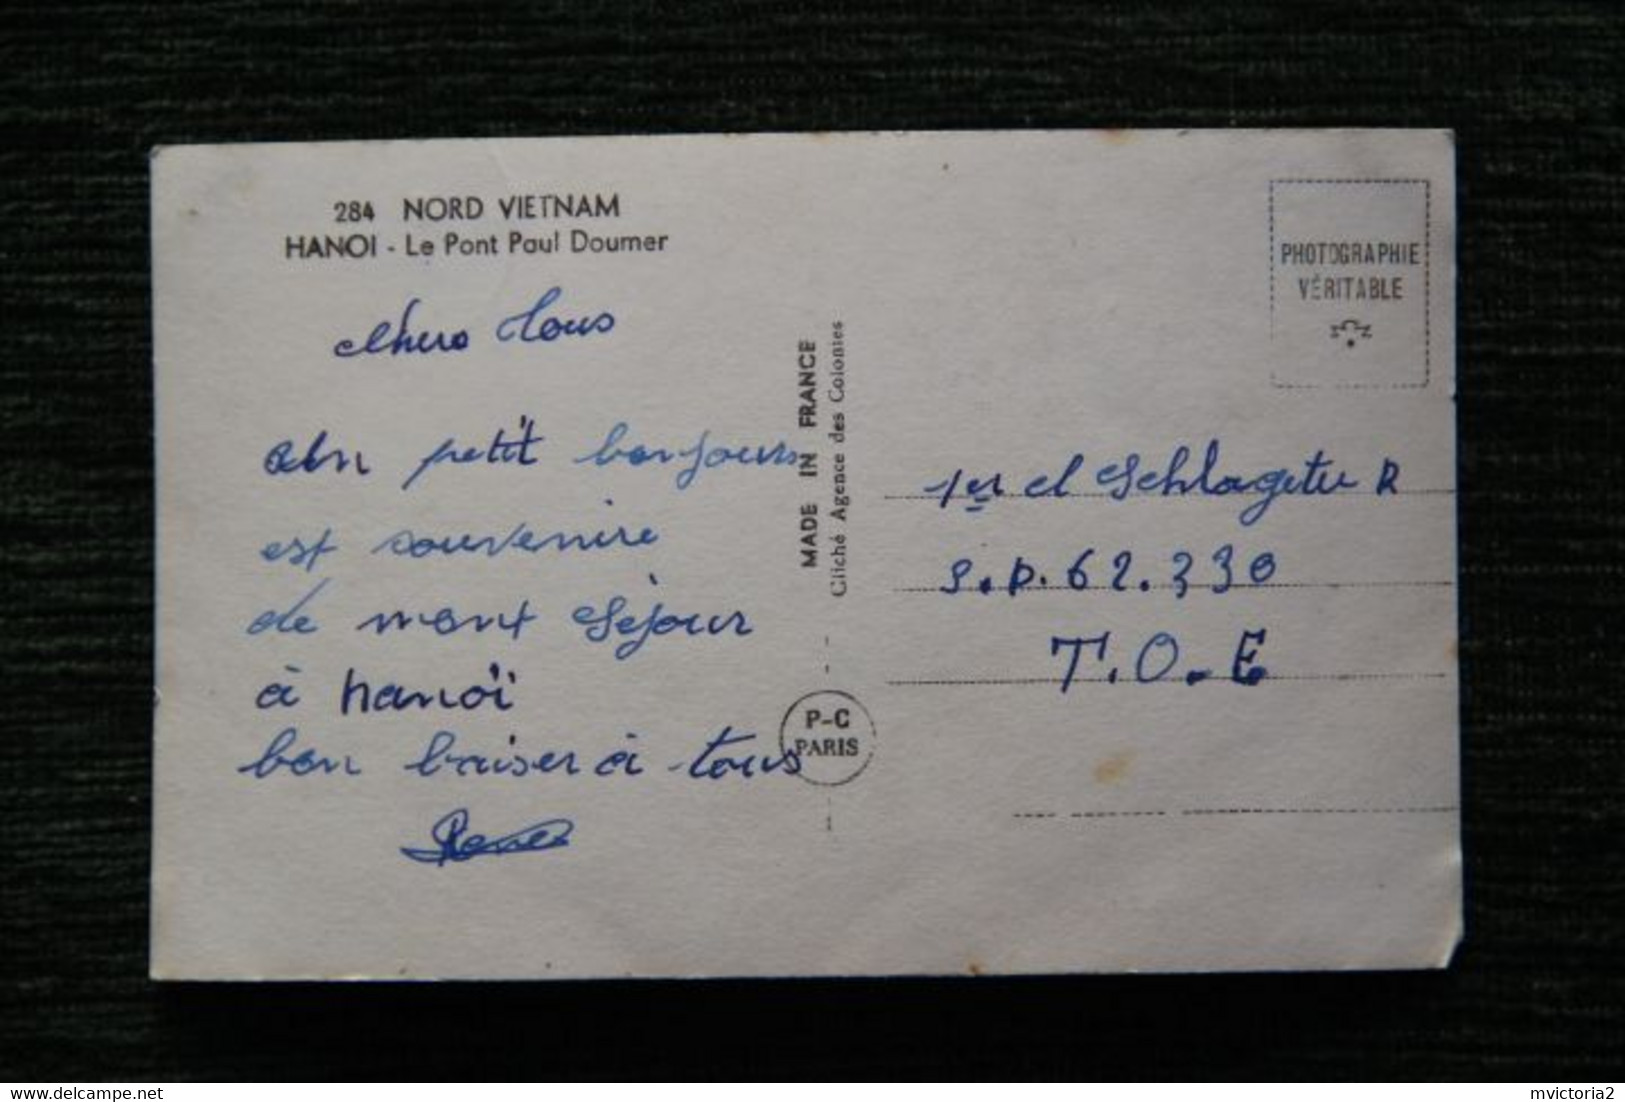 284 NORD VIETNAM
HANOI - Le Pont Paul Doumer
chers Tous
Un petit bonjours
est souvenire
de mont séjour
à hanoï
bon baiser à tous
René
MADE IN FRANCE
Cliché Agence des Colonies
P-C
PARIS
PHOTOGRAPHIE
VÉRITABLE
1er cl Schlageter R
S.P. 62.330
T.O.E
mvictoria2